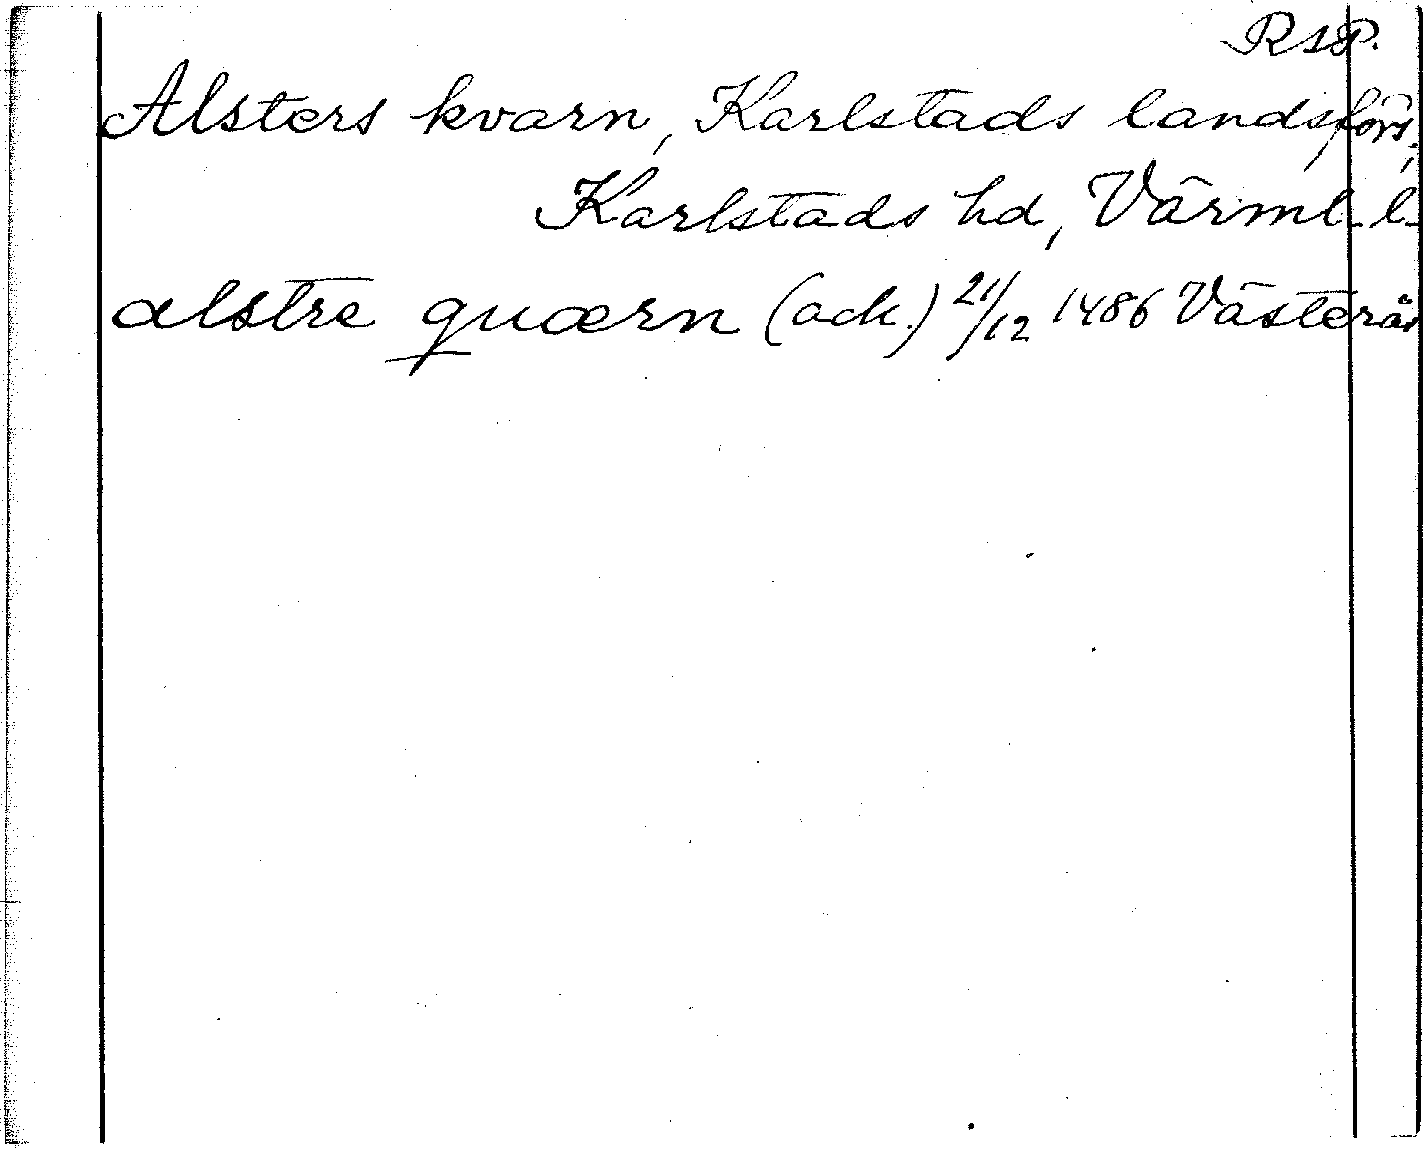 RSP.
Alsters kvarn, Karlstads landsförs.,
Karlstads hd, Värml. l.
alstre quærn (ack.) 21/12 1486 Västerås